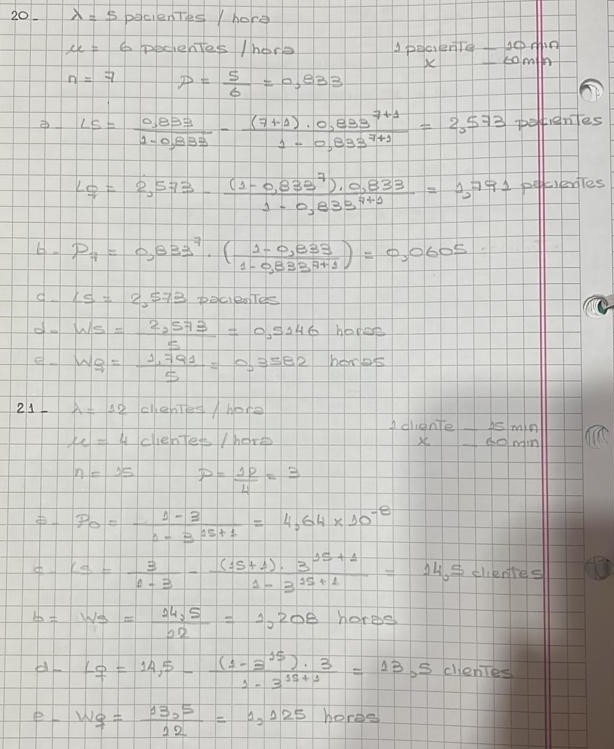 20- λ = 5 pacientes / hora
μ = 6 pacientes / hora 1 paciente — 10 min
x — 60 min
n = 7 P = 5/6 = 0,833
a- LS = 0,833/(1-0,833) - ((7+1) . 0,833^(7+1))/(1 - 0,833^(7+1)) = 2,573 pacientes
Lq = 2,573 - ((1-0,833^7) . 0,833)/(1 - 0,833^(7+1)) = 1,791 pacientes
b- P7 = 0,833^7 . ((1-0,833)/(1-0,833^(7+1))) = 0,0605
c- LS = 2,573 pacientes
d- WS = 2,573/5 = 0,5146 horas
e- Wq = 1,791/5 = 0,3582 horas
21- λ = 12 clientes / hora
μ = 4 clientes / hora 1 cliente — 15 min
x — 60 min
n = 15 P = 12/4 = 3
a- P0 = (1-3)/(1-3^(15+1)) = 4,64 x 10^-8
c- LS = 3/(1-3) - ((15+1) . 3^(15+1))/(1-3^(15+1)) = 14,5 clientes
b= WS = 14,5/12 = 1,208 horas
d- Lq = 14,5 - ((1-3^15) . 3)/(1-3^(15+1)) = 13,5 clientes
e- Wq = 13,5/12 = 1,125 horas